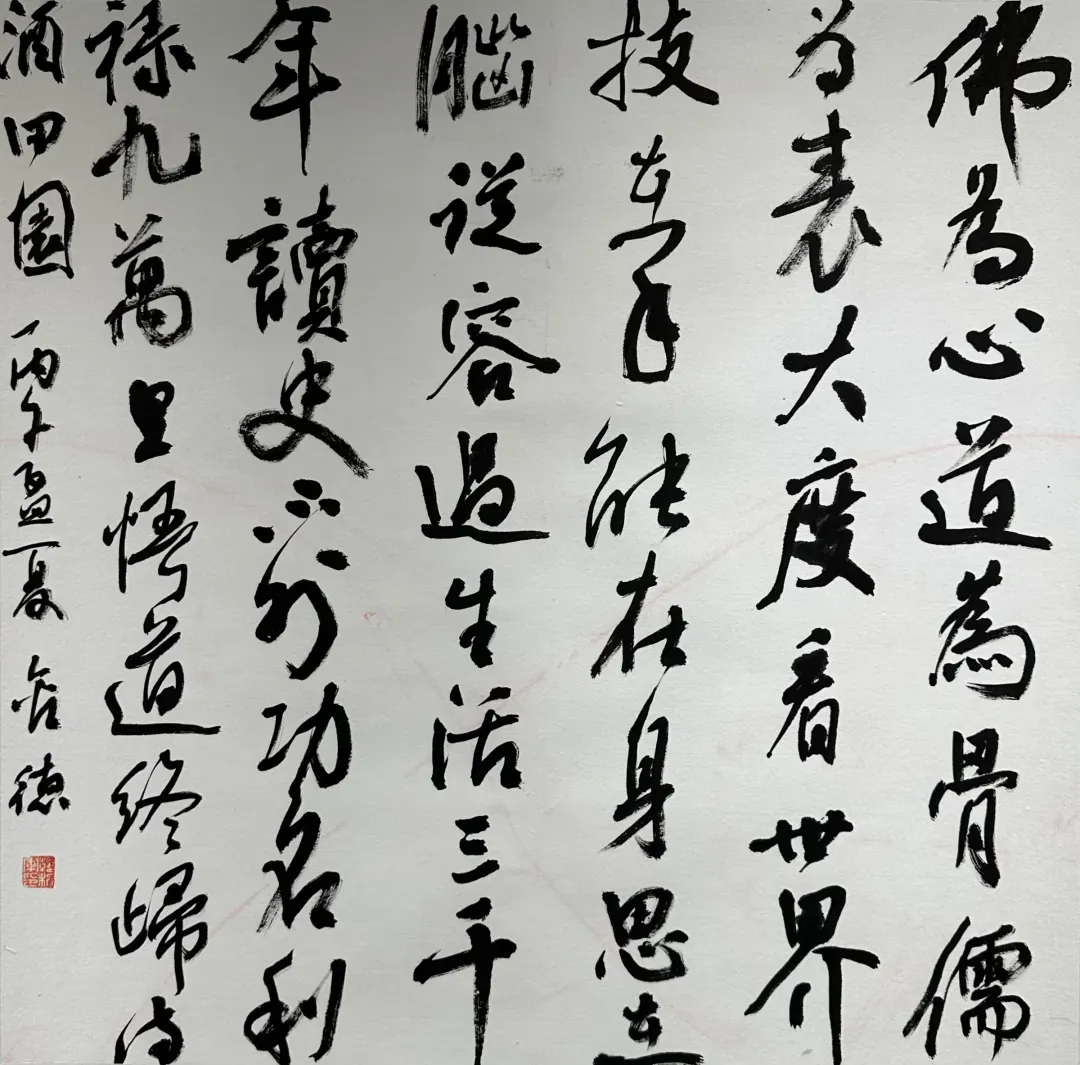 佛為心道為骨儒
为表大度看世界
技在手能在身思在
腦從容過生活三千
年讀史不外功名利
祿九萬里悟道終歸诗
酒田園 丙午孟夏 德